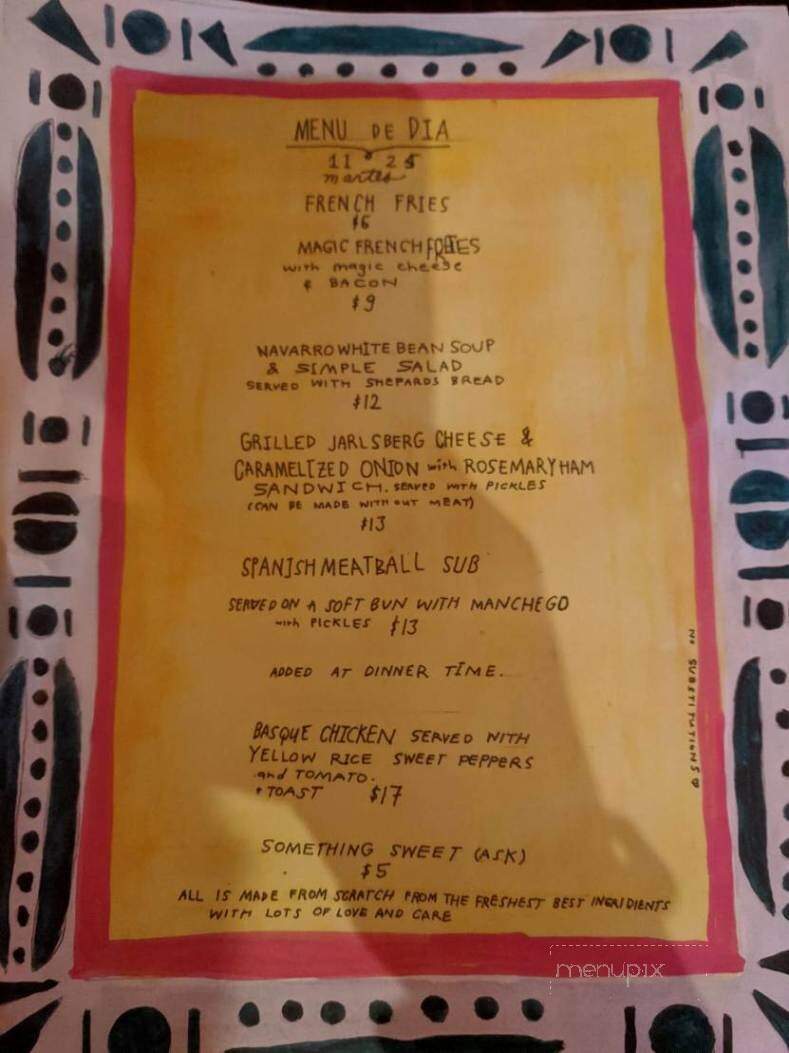 MENU DE DIA
11 • 25
martes
FRENCH FRIES
$6
MAGIC FRENCH FRIES
with magic cheese
& BACON
$9
NAVARRO WHITE BEAN SOUP
& SIMPLE SALAD
SERVED WITH SHEPARDS BREAD
$12
GRILLED JARLSBERG CHEESE &
CARAMELIZED ONION with ROSEMARY HAM
SANDWICH. SERVED WITH PICKLES
(CAN BE MADE WITH OUT MEAT)
$13
SPANISH MEATBALL SUB
SERVED ON A SOFT BUN WITH MANCHEGO
with PICKLES $13
ADDED AT DINNER TIME.
BASQUE CHICKEN SERVED WITH
YELLOW RICE SWEET PEPPERS
and TOMATO.
+ TOAST $17
SOMETHING SWEET (ASK)
$5
ALL IS MADE FROM SCRATCH FROM THE FRESHEST BEST INGRIDIENTS
WITH LOTS OF LOVE AND CARE
NO SUBSTITUTIONS
menupix